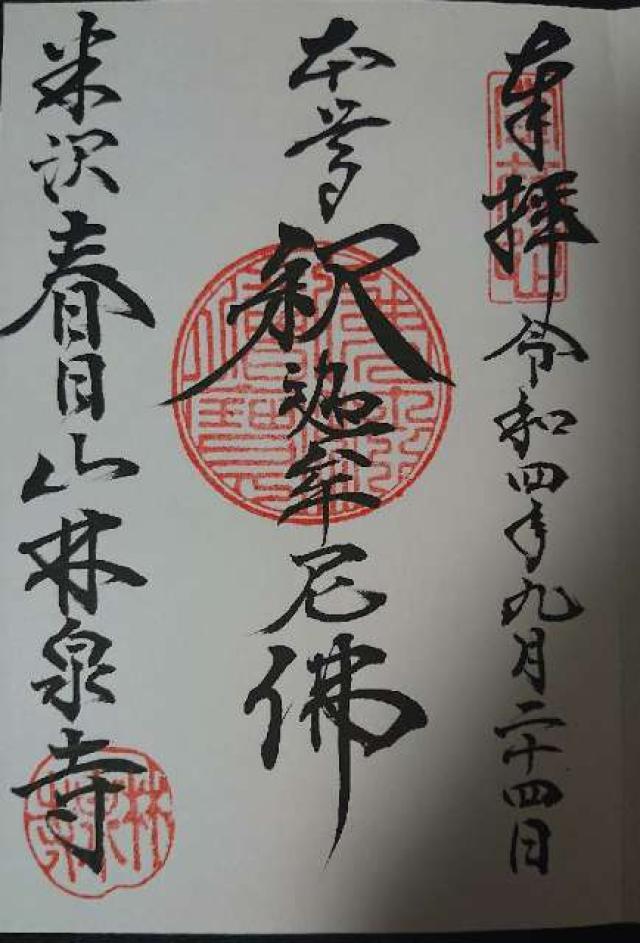 奉拝 令和四年九月二十四日
本尊 釈迦牟尼佛
米沢 春日山林泉寺
林泉寺